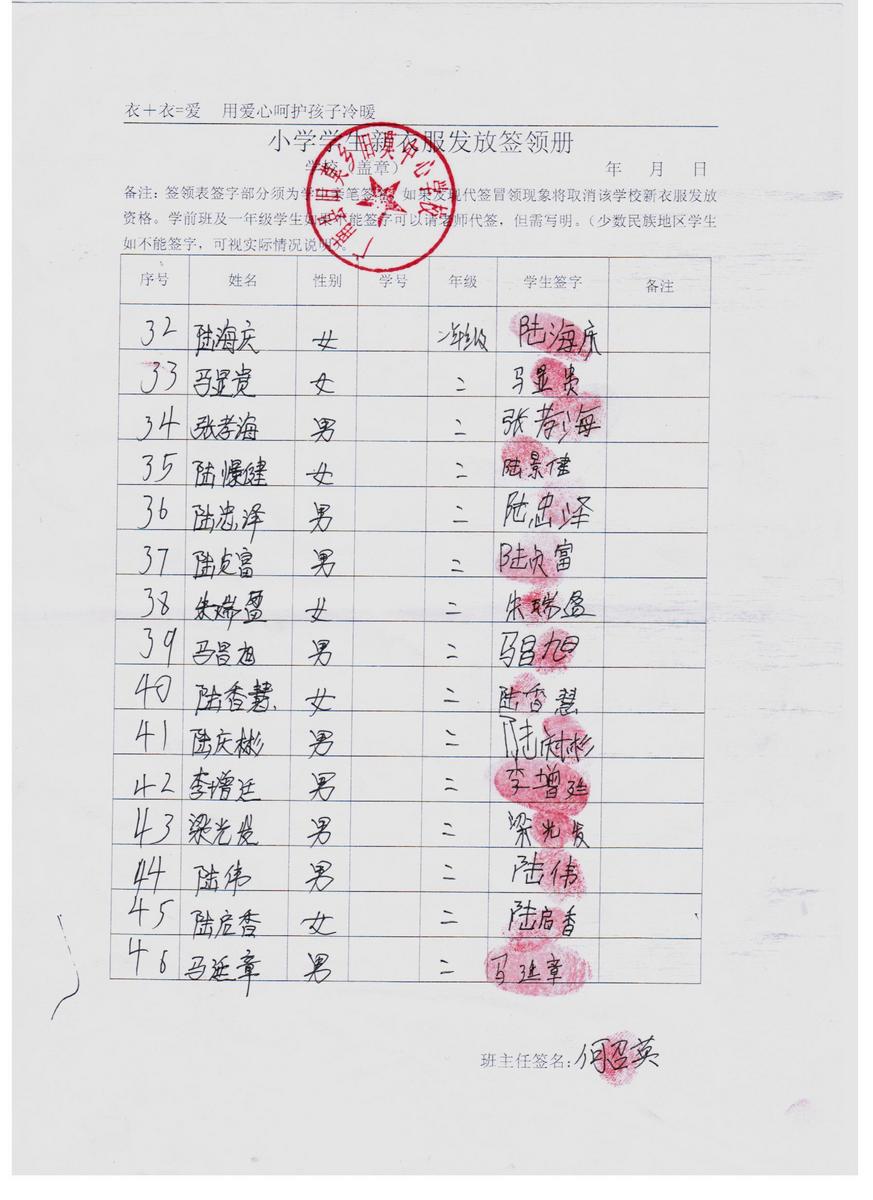 衣＋衣=爱 用爱心呵护孩子冷暖
小学学生新衣服发放签领册
学校（盖章） 年 月 日
备注：签领表签字部分须为学生亲笔签字，如果发现代签冒领现象将取消该学校新衣服发放
资格。学前班及一年级学生如果不能签字可以请老师代签，但需写明。（少数民族地区学生
如不能签字，可视实际情况说明）。
序号 姓名 性别 学号 年级 学生签字 备注
32 陆海庆 女 二年级 陆海庆
33 马显贵 女 二 马显贵
34 张孝海 男 二 张孝海
35 陆憬健 女 二 陆景健
36 陆忠泽 男 二 陆忠泽
37 陆贞富 男 二 陆贞富
38 朱瑞盈 女 二 朱瑞盈
39 马昌旭 男 二 马昌旭
40 陆香慧 女 二 陆香慧
41 陆庆彬 男 二 陆庆彬
42 李增廷 男 二 李增廷
43 梁光发 男 二 梁光发
44 陆伟 男 二 陆伟
45 陆启香 女 二 陆启香
46 马延章 男 二 马延章
班主任签名：何召英